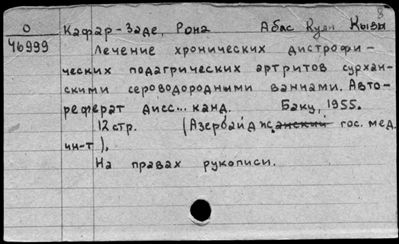 8
О Кафар-Заде, Рона Абас Кули Кызы
46999 Лечение хронических дистрофи-
ческих подагрических артритов сурхан-
скими сероводородными ваннами. Авто-
реферат дисс... канд. Баку, 1955.
12 стр. (Азербайджанский гос. мед.
ин-т).
На правах рукописи.